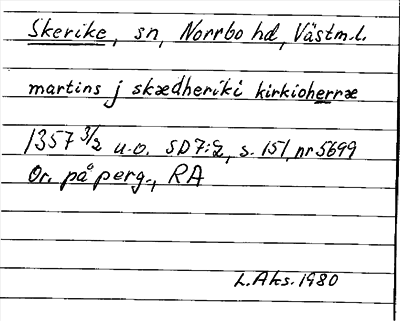 Skerike, sn, Norrbo hd, Västm.l.
martins j skædheriki kirkioherræ
1357 3/2 u.o. SD7:2, s. 151, nr 5699
Or. på perg., RA
L.Aks. 1980